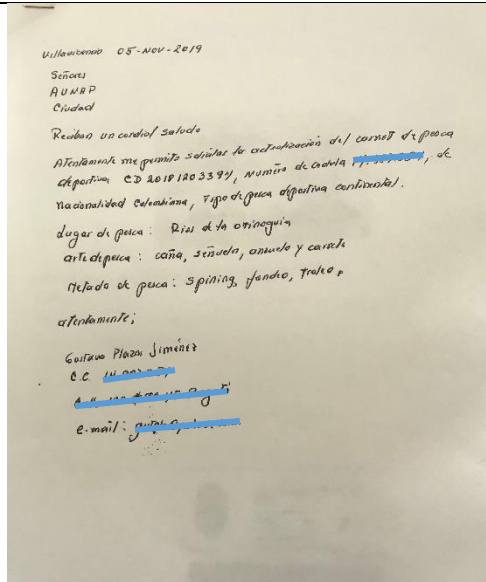 Villavicencio 05-NOV-2019
Señores
AUNAP
Ciudad
Reciban un cordial saludo
Atentamente me permito solicitar la actualización del carnet de pesca
deportiva CD 20181203394, Numero de cedula, de
nacionalidad Colombiana, Tipo de pesca deportiva continental.
Lugar de pesca: Rios de la orinoquia
arte de pesca: caña, señuelo, anzuelo y carrete
Metodo de pesca: Spining, fondeo, troleo,
atentamente;
Gustavo Plazas Jiménez
C.C.
Bogotá
e-mail: